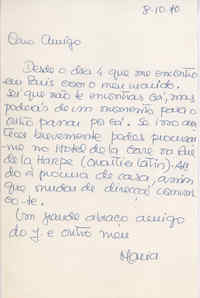 8.10.70
Caro Amigo
Desde o dia 4 que me encontro
em Paris com o meu marido.
Sei que não te encontras cá, mas
poderás de um momento para o
outro passar por cá. Se isso acon
tecer brevemente podes procurar
-me no Hotel de la Gare na Rue
de la Harpe (quartier latin). An
do à procura de casa, assim
que mudar de direcção comuni
co-te.
Um grande abraço amigo
do J. e outro meu
Maria